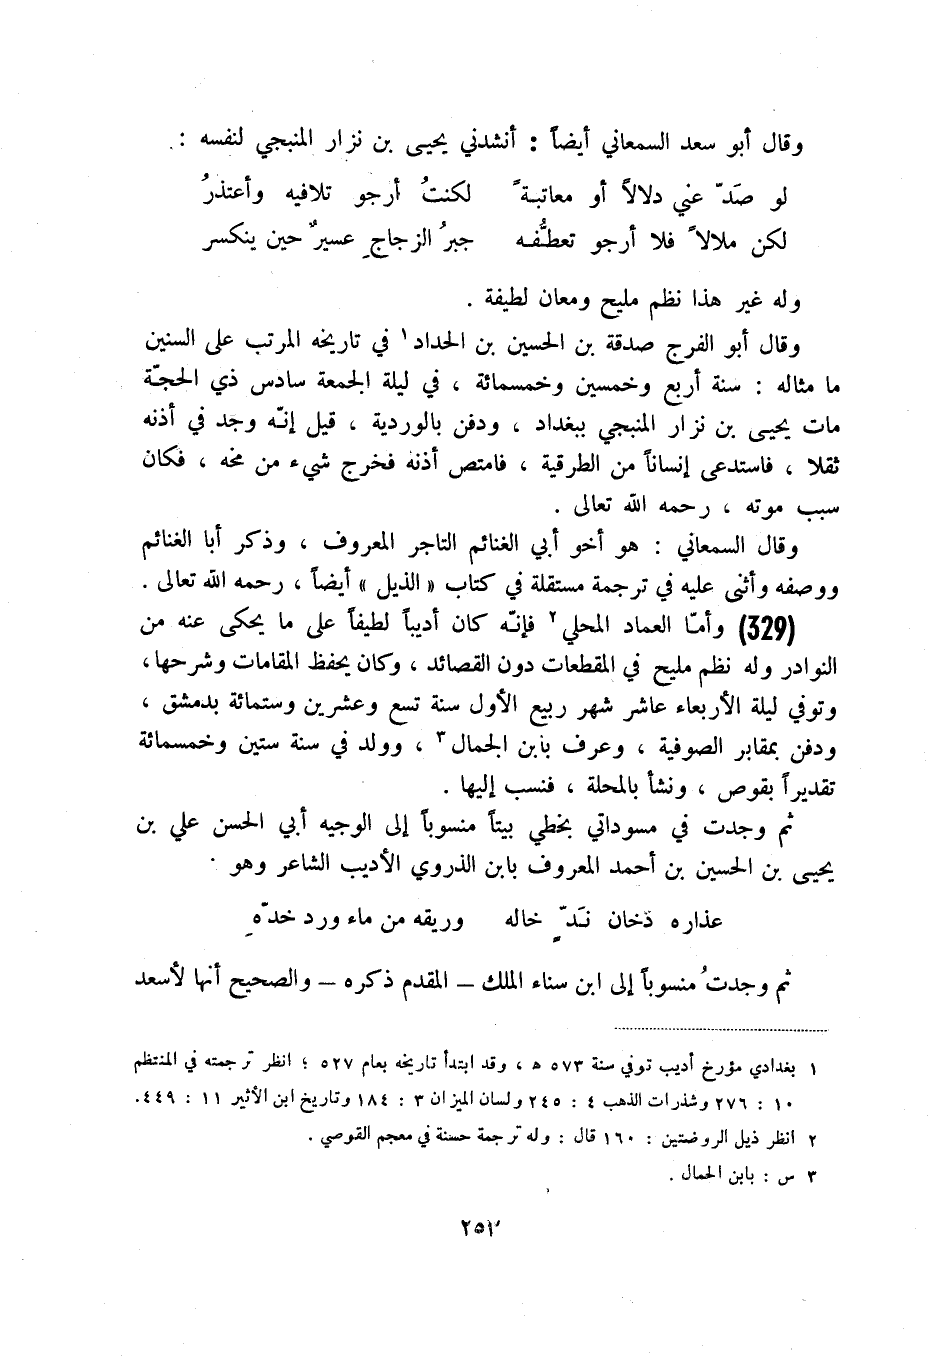 وقال أبو سعد السمعاني أيضاً : أنشدني يحيى بن نزار المنبجي لنفسه :
لو صَدّ عني دلالاً أو معاتبةً لكنتُ أرجو تلافيه وأعتذرُ
لكن ملالاً فلا أرجو تعطُّفه جبرُ الزجاجِ عسيرٌ حين ينكسر
وله غير هذا نظم مليح ومعان لطيفة .
وقال أبو الفرج صدقة بن الحسين بن الحداد١ في تاريخه المرتب على السنين
ما مثاله : سنة أربع وخمسين وخمسمائة ، في ليلة الجمعة سادس ذي الحجّة
مات يحيى بن نزار المنبجي ببغداد ، ودفن بالوردية ، قيل إنّه وجد في أذنه
ثقلا ، فاستدعى إنساناً من الطرقية ، فامتص أذنه فخرج شيء من مخه ، فكان
سبب موته ، رحمه الله تعالى .
وقال السمعاني : هو أخو أبي الغنائم التاجر المعروف ، وذكر أبا الغنائم
ووصفه وأثنى عليه في ترجمة مستقلة في كتاب « الذيل » أيضاً ، رحمه الله تعالى .
(329) وأمّا العماد المحلي٢ فإنّه كان أديباً لطيفاً على ما يحكى عنه من
النوادر وله نظم مليح في المقطعات دون القصائد ، وكان يحفظ المقامات وشرحها،
وتوفي ليلة الأربعاء عاشر شهر ربيع الأول سنة تسع وعشرين وستمائة بدمشق ،
ودفن بمقابر الصوفية ، وعرف بابن الجمال٣ ، وولد في سنة ستين وخمسمائة
تقديراً بقوص ، ونشأ بالمحلة ، فنسب إليها .
ثم وجدت في مسوداتي بخطي بيتاً منسوباً إلى الوجيه أبي الحسن علي بن
يحيى بن الحسين بن أحمد المعروف بابن الذروي الأديب الشاعر وهو .
عذاره دخان نَدِّ خاله وريقه من ماء ورد خدّهِ
ثم وجدتُ منسوباً إلى ابن سناء الملك – المقدم ذكره – والصحيح أنها لأسعد
١ بغدادي مؤرخ أديب توفي سنة ٥٧٣ ه ، وقد ابتدأ تاريخه بعام ٥٢٧ ؛ انظر ترجمته في المنتظم
١٠ : ٢٧٦ وشذرات الذهب ٤ : ٢٤٥ ولسان الميزان ٣ : ١٨٤ وتاريخ ابن الأثير ١١ : ٤٤٩.
٢ انظر ذيل الروضتين : ١٦٠ قال : وله ترجمة حسنة في معجم القوصي .
٣ س : بابن الحمال .